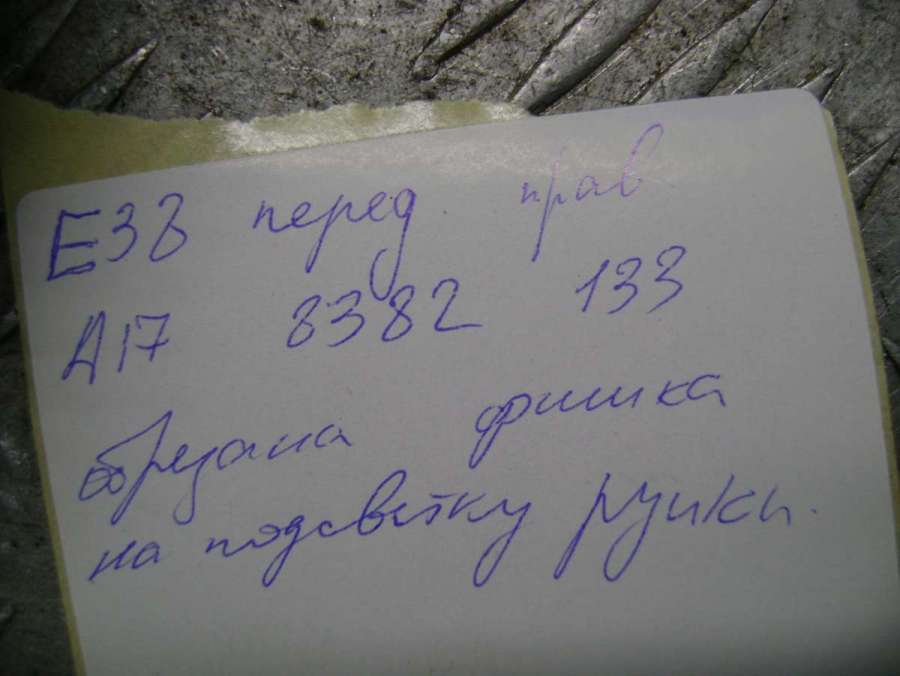 E38 перед прав
A17 8382 133
обрезана фишка
на подсветку ручки.